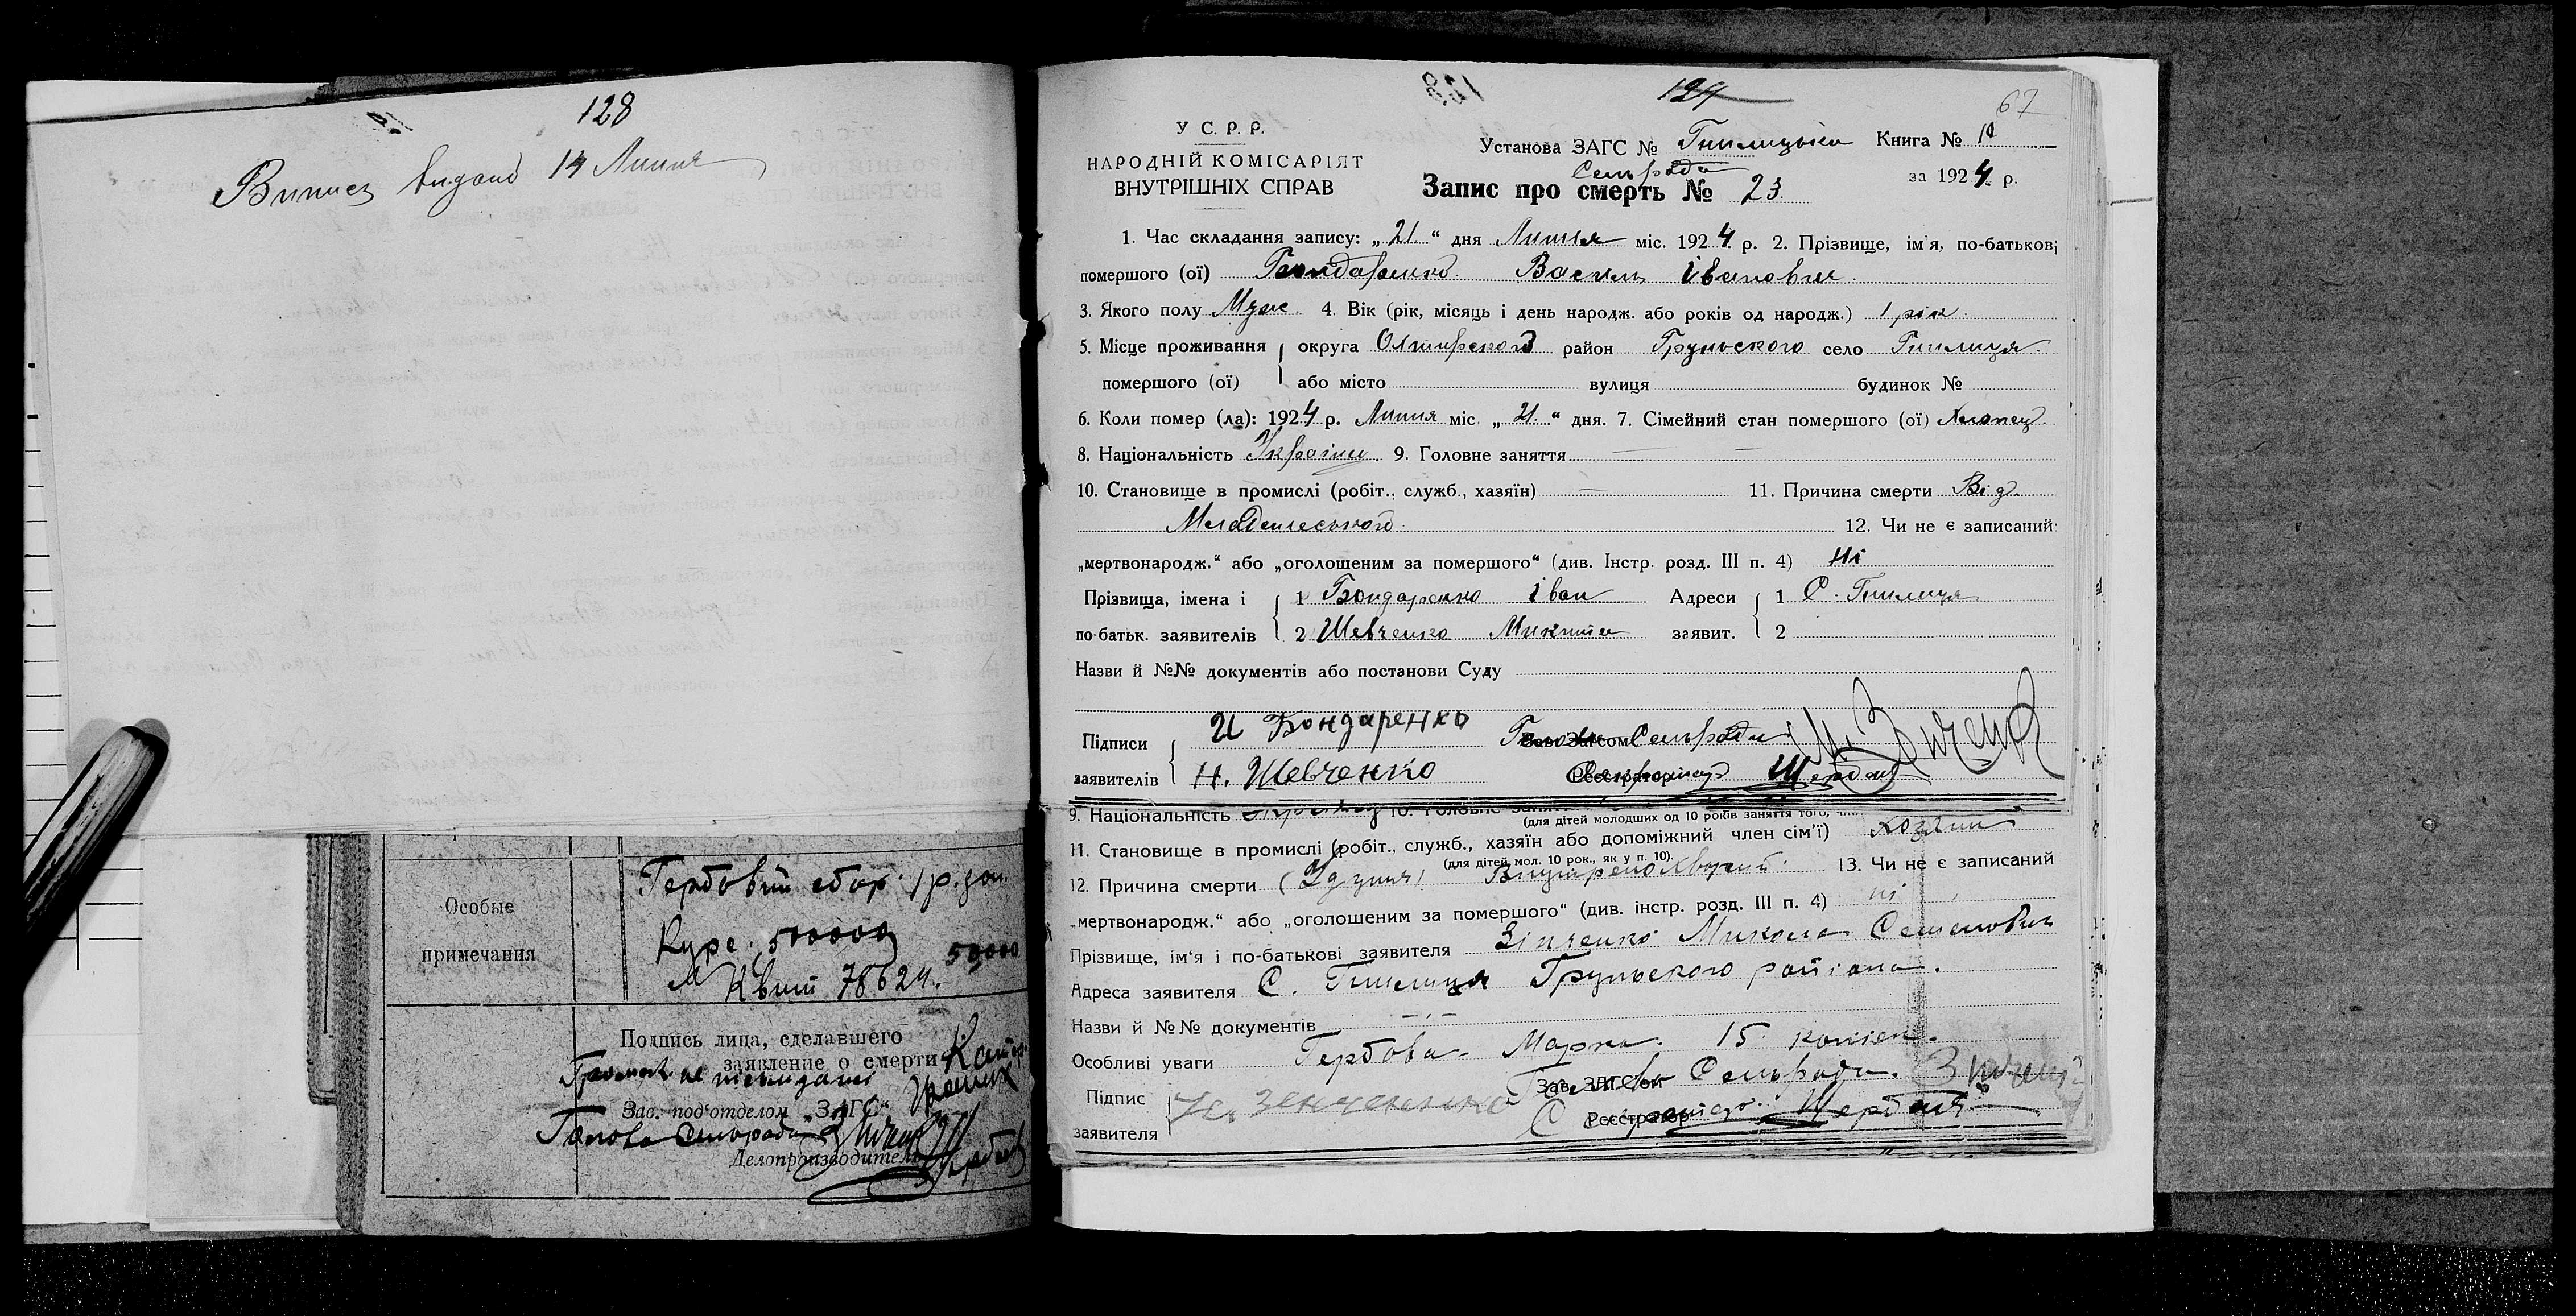 128
Випись видано 14 Липня
Гербовий сбор. 1 р. зол.
Особые
примечания
Курс. 500000
50000
Квит 78624.
Подпись лица, сделавшего
заявление о смерти
Зав. под'отделом „ЗАГС"
Голова Сельради
Делопроизводитель
124
67
У С. Р. Р.
НАРОДНІЙ КОМІСАРІЯТ
ВНУТРІШНІХ СПРАВ
Установа ЗАГС № Гнилицька Книга № 10
Сельрада
Запис про смерть № 23. за 1924 р.
1. Час складання запису: „21" дня Липня міс. 1924 р. 2. Прізвище, ім'я, по-батькові
помершого (ої) Бондаренко Василь Іванович.
3. Якого полу Муж. 4. Вік (рік, місяць і день народж. або років од народж.) 1 рік.
5. Місце проживання округа район Грунського село Гнилиця.
помершого (ої) або місто вулиця будинок №
6. Коли помер (ла): 1924 р. Липня міс. „21" дня. 7. Сімейний стан помершого (ої) Хлопец.
8. Національність Україн. 9. Головне заняття —
10. Становище в промислі (робіт., служб., хазяїн) — 11. Причина смерти Від
Младенческого. 12. Чи не є записаний
„мертвонародж." або „оголошеним за помершого" (див. Інстр. розд. III п. 4) Ні
Прізвища, імена і 1 Бондаренко Іван Адреси 1 С. Гнилиця
по-батьк. заявителів 2 Шевченко Микита заявит. 2
Назви й №№ документів або постанови Суду
Підписи И Бондаренко Голова Сельради
заявителів Н. Шевченко Реєстратор Щербак
9. Національність 10. Головне
(для дітей молодших од 10 років заняття того,
11. Становище в промислі (робіт., служб., хазяїн або допоміжний член сім'ї) хозяин
(для дітей мол. 10 рок., як у п. 10).
12. Причина смерти 13. Чи не є записаний
„мертвонародж." або „оголошеним за помершого" (див. інстр. розд. III п. 4) ні
Прізвище, ім'я і по-батькові заявителя Зінченко Микола Семенович
Адреса заявителя С. Гнилиця Грунського району.
Назви й №№ документів —
Особливі уваги Гербова Марка. 15 копієк.
Зав. ЗАГСом Голова Сельради.
Підпис
заявителя Реєстратор Щербак